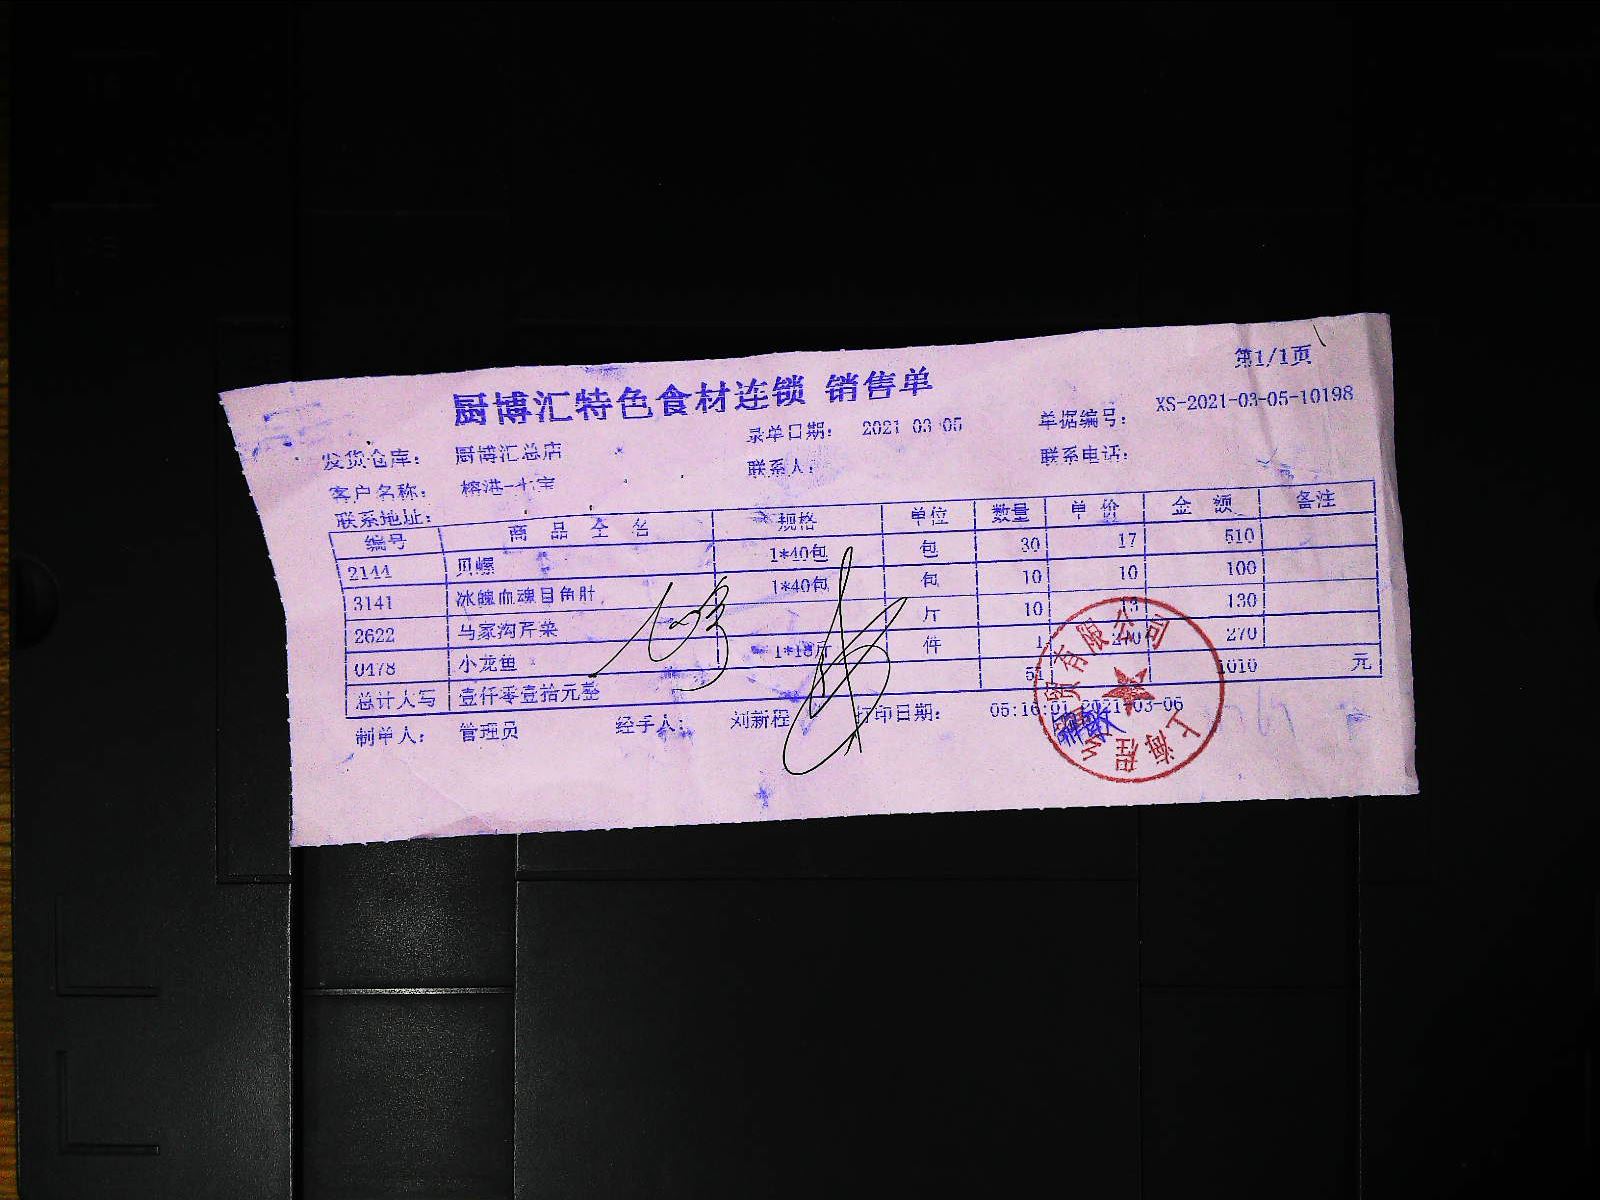 第1/1页
厨博汇特色食材连锁 销售单
发货仓库： 厨博汇总店 录单日期： 2021 03 05 单据编号： XS-2021-03-05-10198
客户名称： 榕港-七宝 联系人： 联系电话：
联系地址：
编号 商 品 全 名 规格 单位 数量 单 价 金 额 备注
2144 贝螺 1*40包 包 30 17 510
3141 冰魄血魂目鱼肚 1*40包 包 10 10 100
2622 马家沟芹菜 斤 10 13 130
0478 小龙鱼 1*18斤 件 1 270 270
总计大写 壹仟零壹拾元整 51 1010 元
制单人： 管理员 经手人： 刘新程 打印日期： 05:16:01 2021-03-06
上海程 贸有限公司